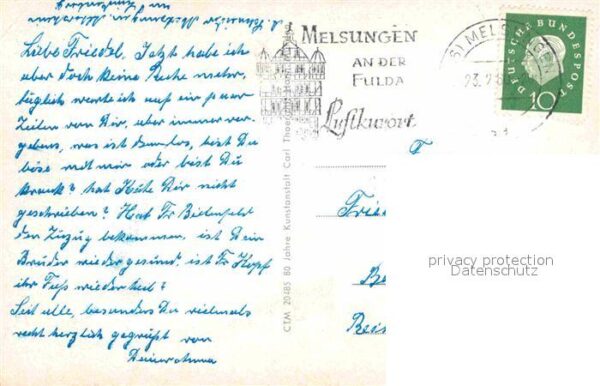 Liebe Friedel, Jetzt habe ich
aber doch keine Ruhe mehr,
täglich warte ich auf ein paar
Zeilen von Dir, aber immer ver-
gebens, was ist denn los, bist Du
böse mit mir oder bist Du
krank? hat Käte Dir nicht
geschrieben? Hat Fr Bielenfeld
den Zuzug bekommen, ist Dein
Bruder wieder gesund, ist Fr Kopf
ihr Fuß wieder heil?
Seit alle, besonders Du vielmals
recht herzlich gegrüßt von
Deiner Anna
MELSUNGEN
AN DER
FULDA
Luftkurort
MELS
23.
DEUTSCHE BUNDESPOST
10
CTM 20485 80 Jahre Kunstanstalt Carl
F
Frie
Be
Beis
privacy protection
Datenschutz